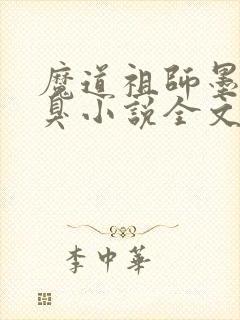 魔道祖師墨
臭小說全文
李中華